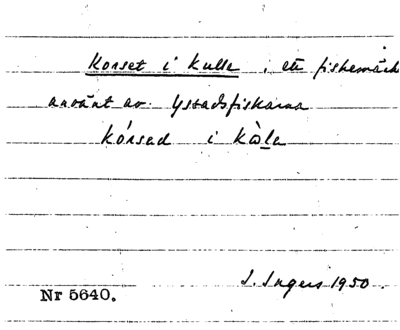 Korset i Kulla, ett fiskemärk
använt av Ystadsfiskarna
kórsad i kòla
I. Ingers 1950.
Nr 5640.